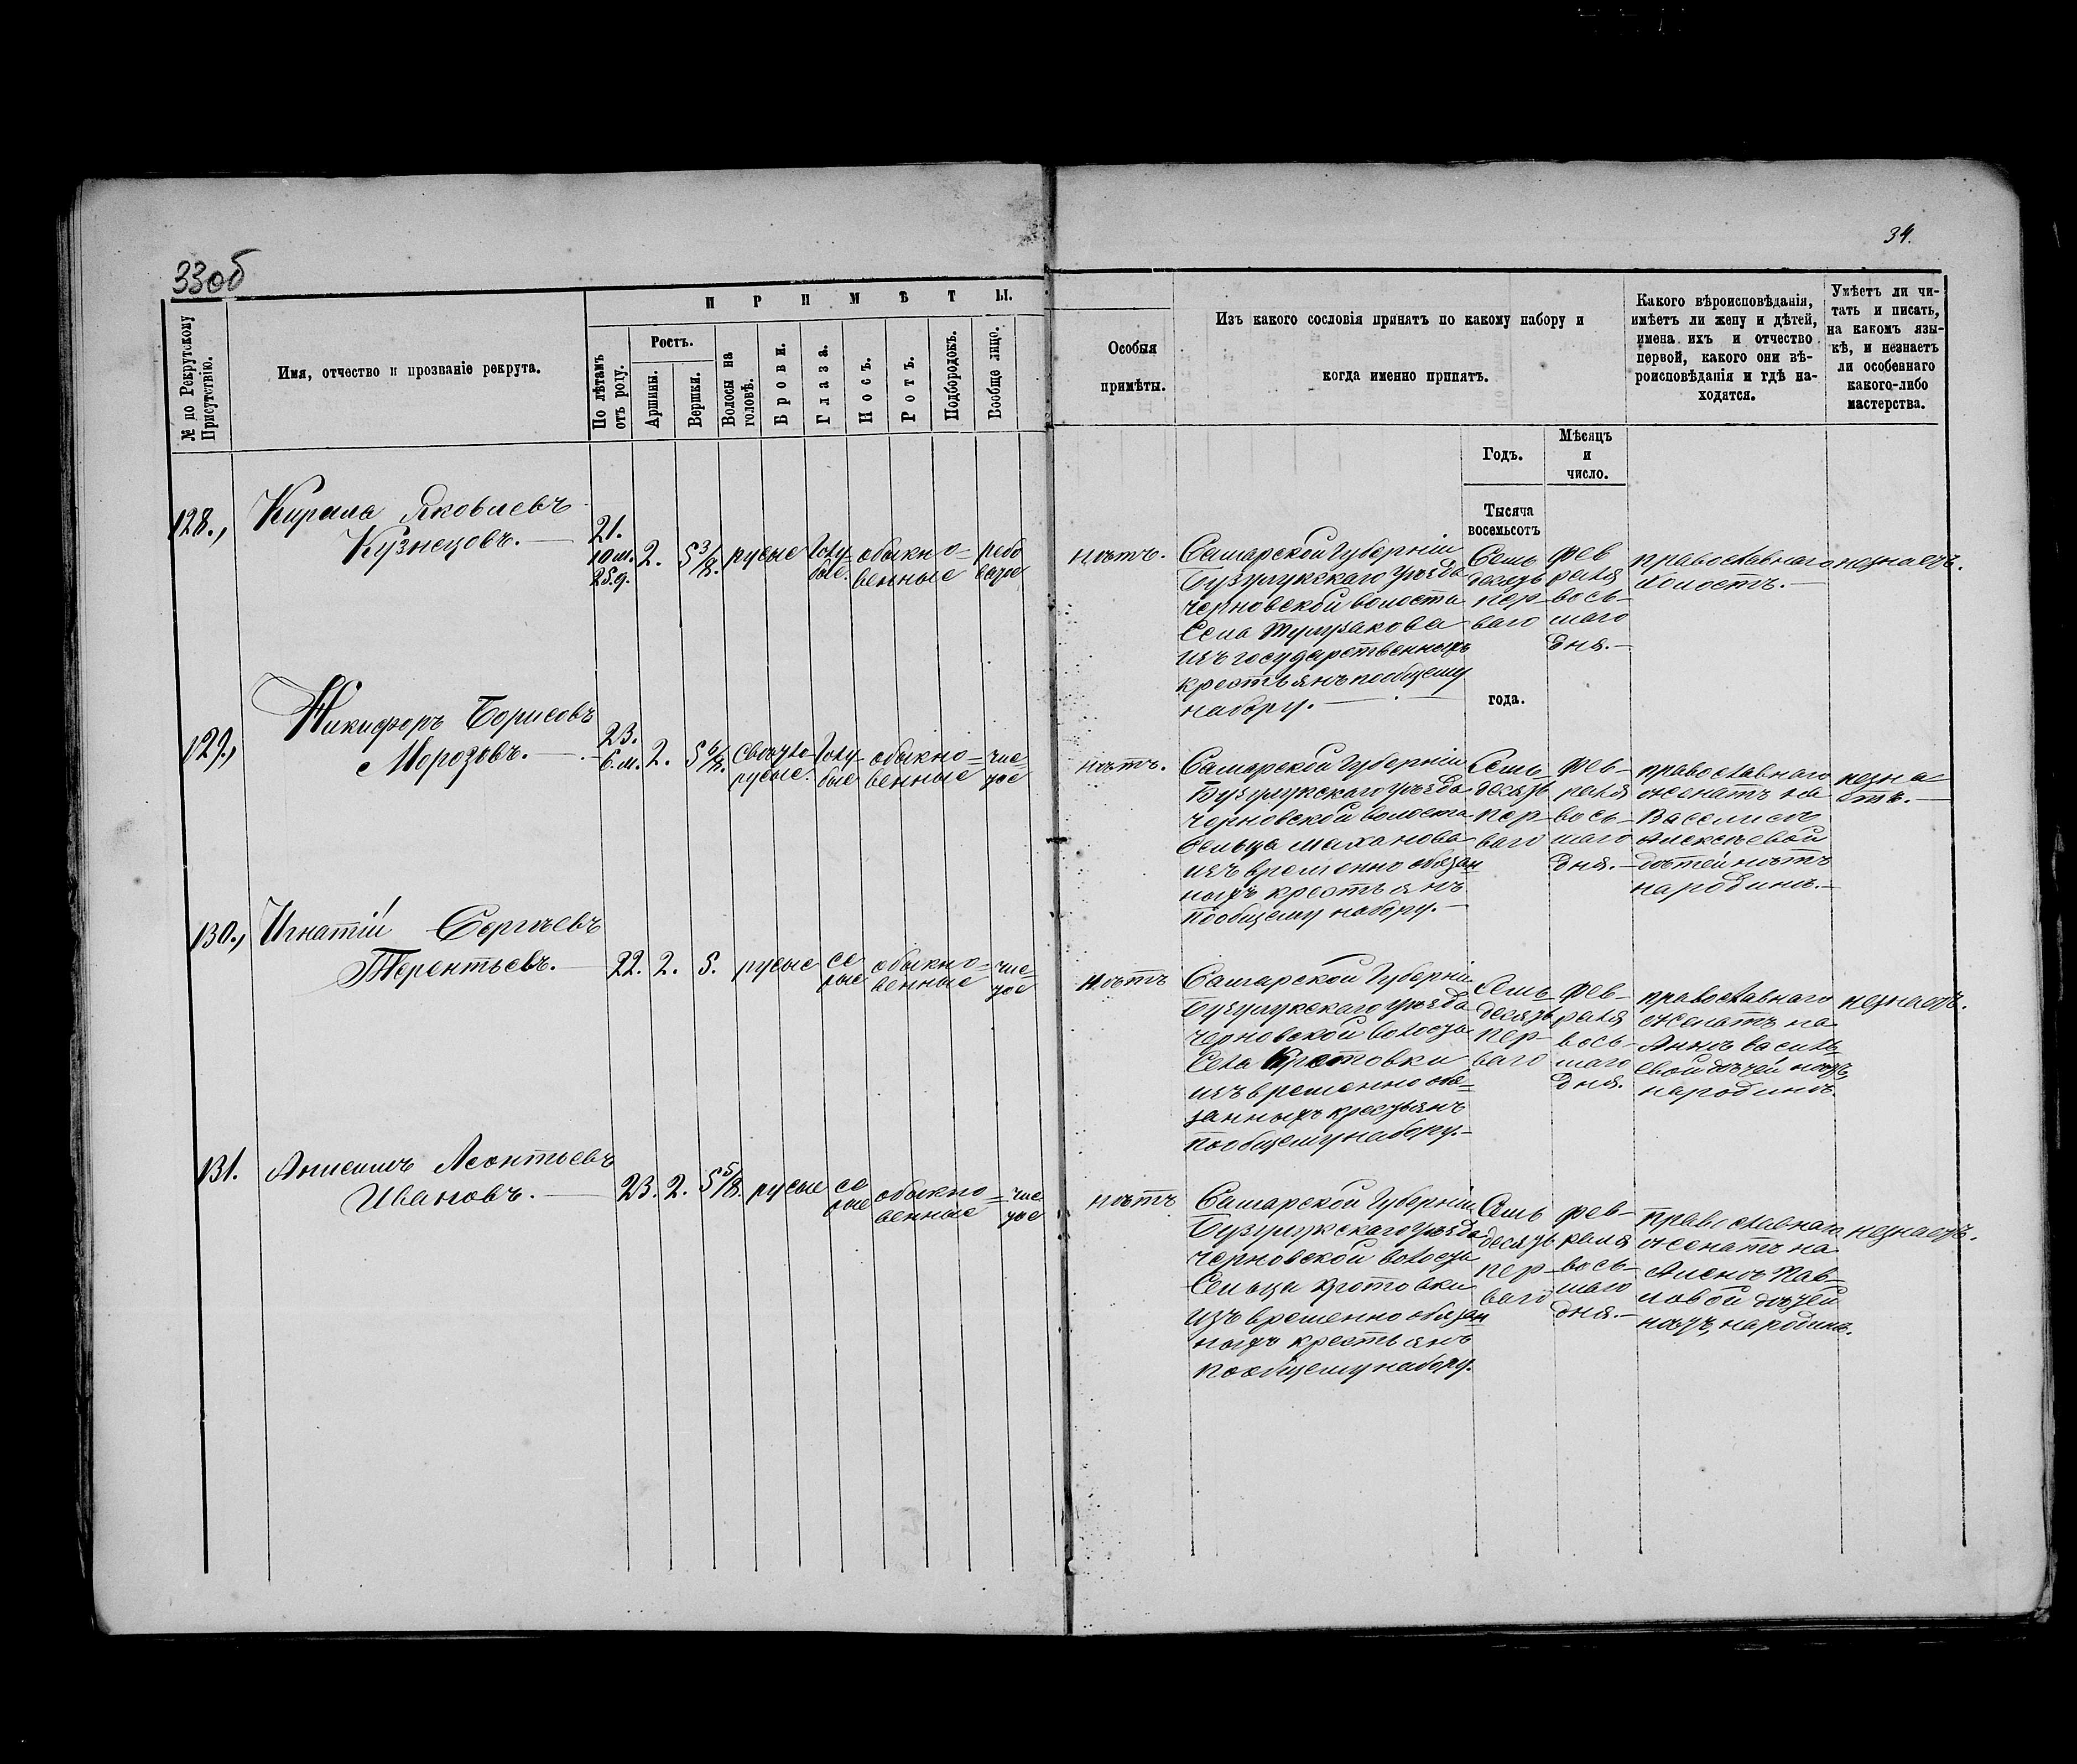 33об
34.
№ по Рекрутскому Присутствію.
Имя, отчество и прозваніе рекрута.
ПРИМѢТЫ.
По лѣтамъ отъ роду.
Ростъ.
Аршины.
Вершки.
Волосы на головѣ.
Брови.
Глаза.
Носъ.
Ротъ.
Подбородокъ.
Вообще лицо.
Особыя
примѣты.
Изъ какого сословія принятъ по какому набору и
когда именно принятъ.
Годъ.
Мѣсяцъ
и
число.
Тысяча
восемьсотъ
года.
Какого вѣроисповѣданія,
имѣетъ ли жену и дѣтей,
имена ихъ и отчество
первой, какого они вѣ-
роисповѣданія и гдѣ на-
ходятся.
Умѣетъ ли чи-
тать и писать,
на какомъ язы-
кѣ, и незнаетъ
ли особеннаго
какого-либо
мастерства.
128.,
Кирила Яковлевъ
Кузнецовъ.
21.
10 м.
25 д.
2.
5 3/8.
русые
голу-
бые.
обыкно=
венные
рябо
ватое
нѣтъ.
Самарской Губерніи
Бузулукскаго уѣзда
Черновской волости
Села
изъ государственныхъ
крестьянъ пообщему
набору.
Семь
десятъ
пер-
ваго
Фев
раля
вось-
маго
дня.
православнаго
холостъ.
незнаетъ.
129.,
Никифоръ Борисовъ
Морозовъ.
23.
6. м.
2.
5 6/8.
свѣтло-
русые.
голу-
бые
обыкно=
венные
чис=
тое
нѣтъ.
Самарской Губерніи
Бузулукскаго уѣзда
Черновской волости
Сельца Маханова
изъ временно обязан
ныхъ крестьянъ
пообщему набору.
Семь
десятъ
пер-
ваго
Фев-
раля
вось-
маго
дня.
православнаго
женатъ на
Василисѣ
Алексѣевой
дѣтей нѣтъ
народинѣ.
незна
етъ.
130.,
Игнатій Сергѣевъ
Терентьевъ.
22.
2.
5.
русые
се
рые
обыкно=
венные
чис=
тое
нѣтъ
Самарской Губерніи
Бузулукскаго уѣзда
Черновской волости
Села Кротовки
изъ временно обя=
занныхъ крестьянъ
пообщему набору.
Семь
десятъ
пер-
ваго
Фев-
раля
вось-
маго
дня.
православнаго
женатъ на
Аннѣ Василь
евой дѣтей нѣтъ,
народинѣ.
незнаетъ.
131.
Анисимъ Леонтьевъ
Ивановъ.
23.
2.
5 5/8.
русые
се
рые
обыкно=
венные
чис
тое
нѣтъ
Самарской Губерніи
Бузулукскаго уѣзда
Черновской волости
Сельца Кротовки
изъ временно обязан
ныхъ крестьянъ
пообщему набору.
Семь
десятъ
пер-
ваго
фев-
раля
вось-
маго
дня.
православнаго
женатъ на
Аленѣ Пав-
ловой дѣтей
нѣтъ, народинѣ.
незнаетъ.